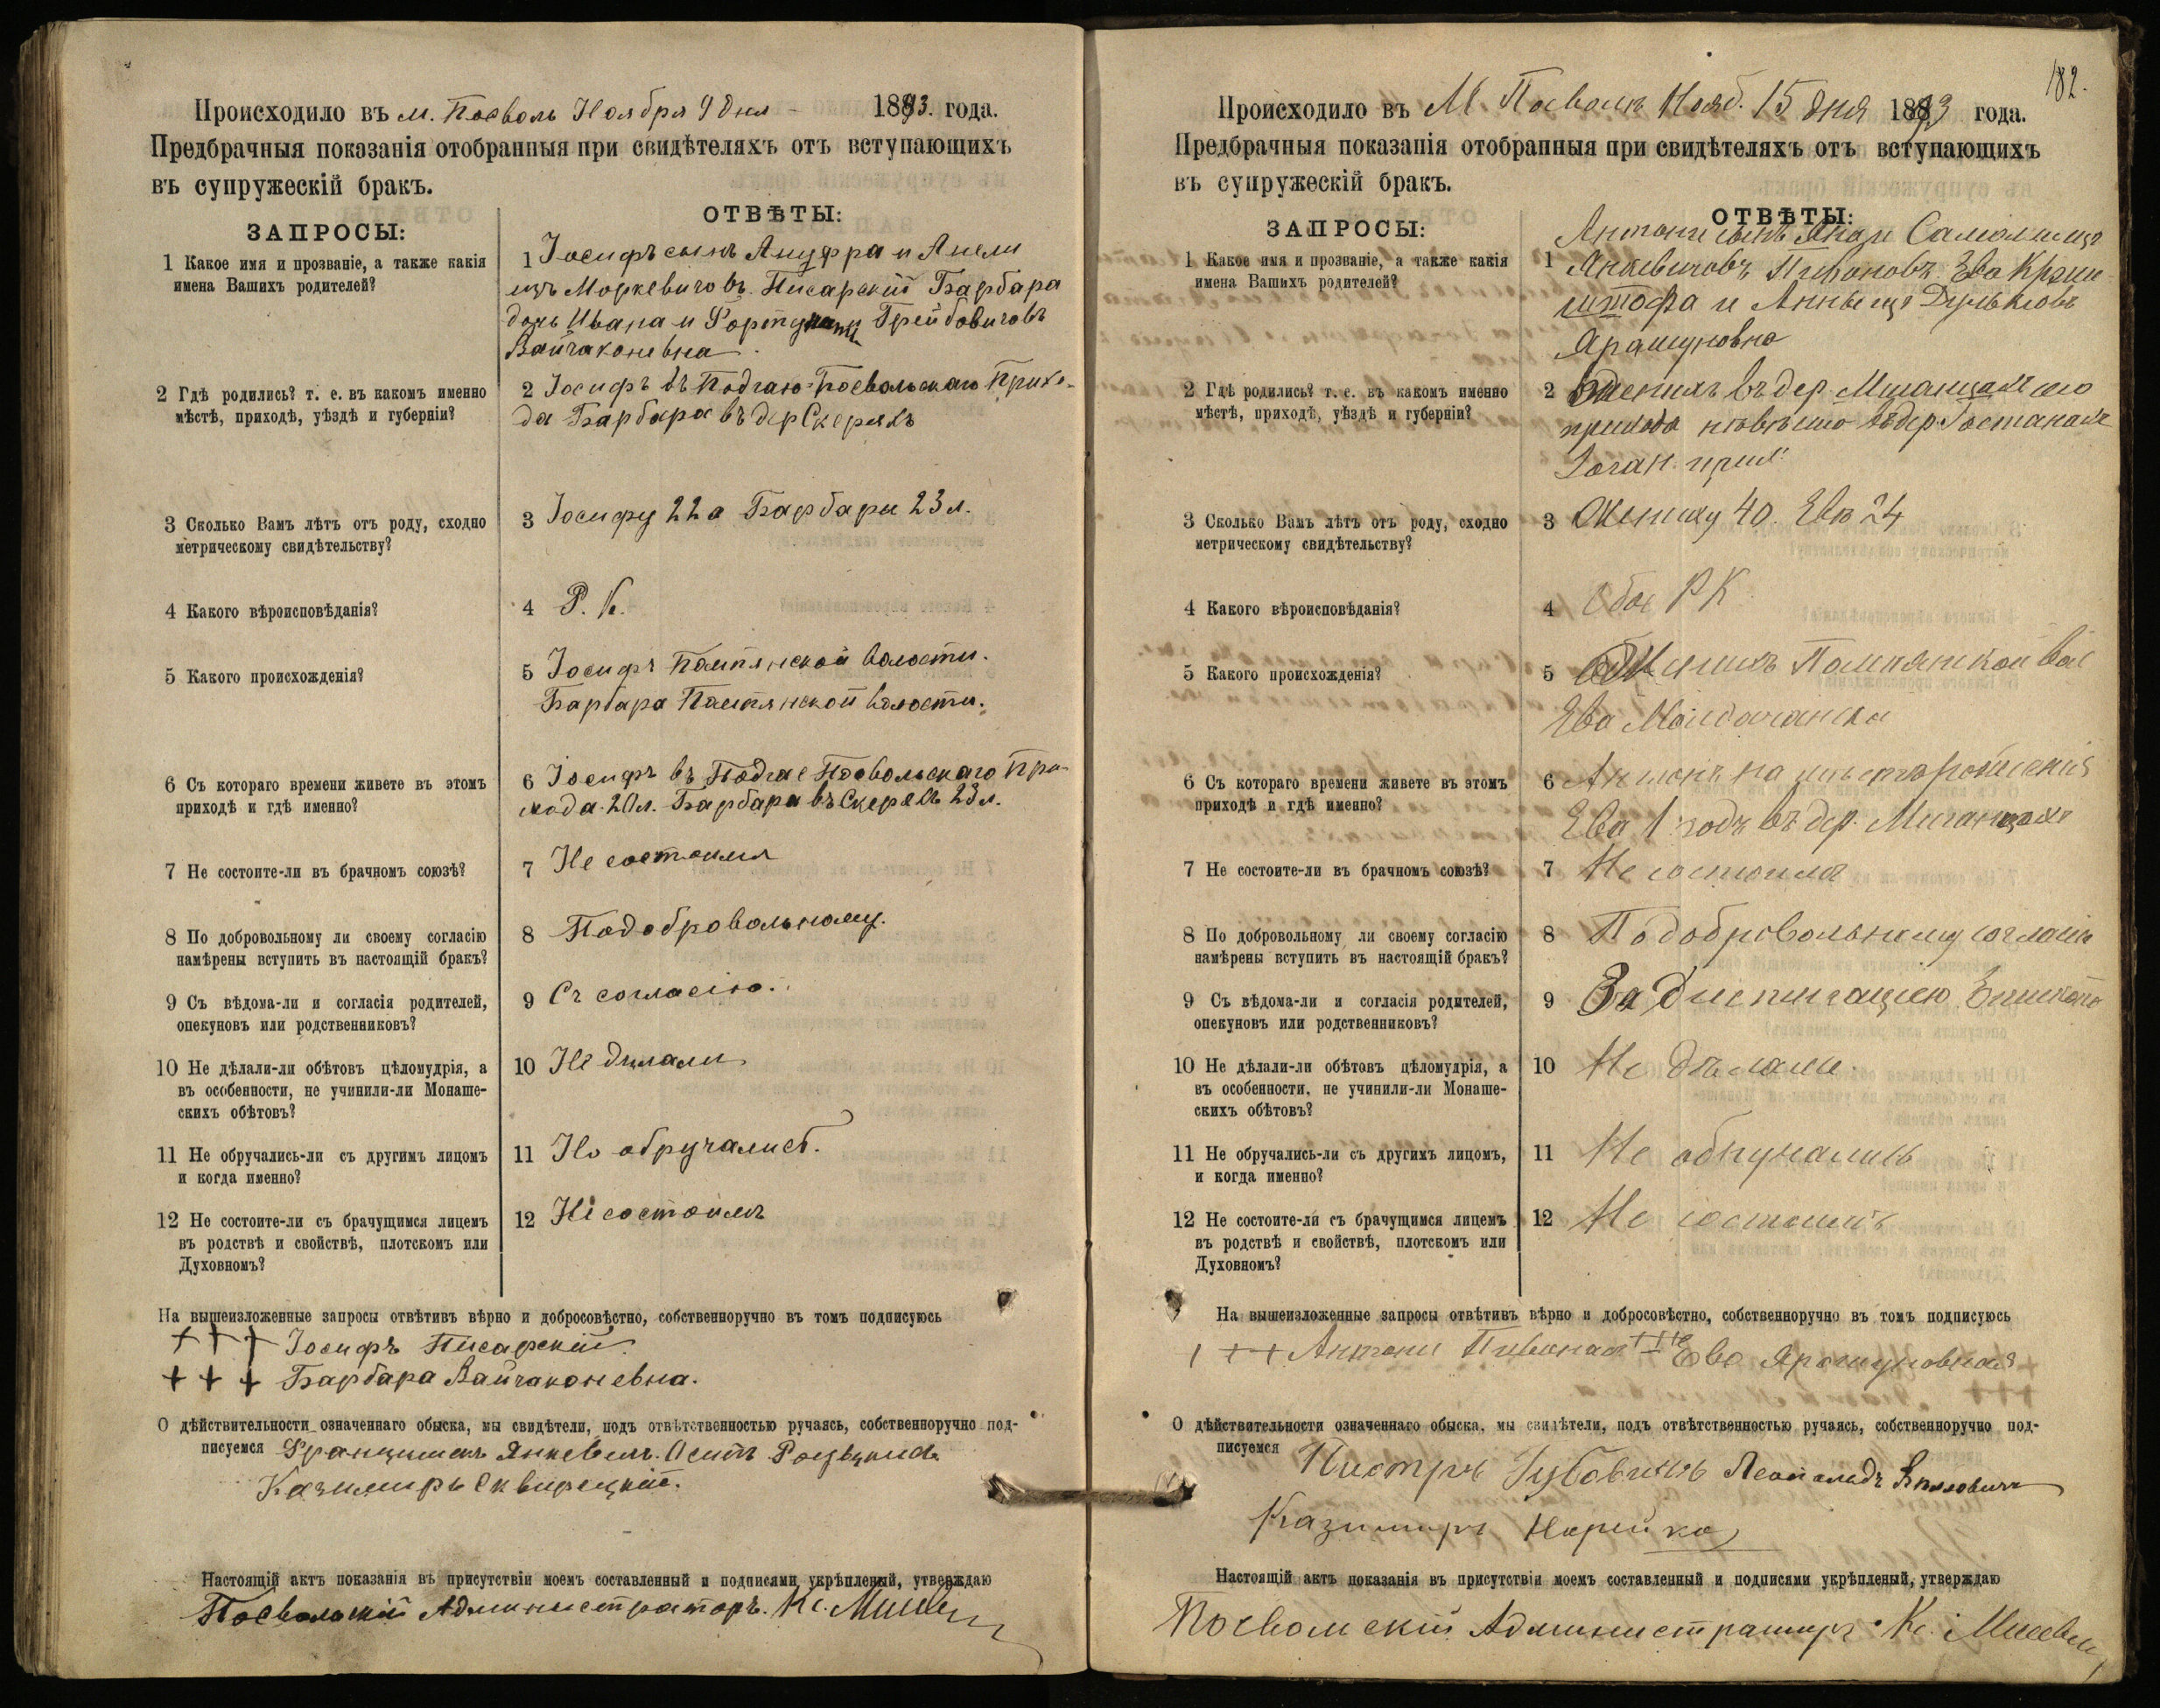 Происходило въ м. Посволь Ноября 9 дня - 1893. года.
Предбрачныя показанія отобранныя при свидѣтеляхъ отъ вступающихъ
въ супружескій бракъ.
ЗАПРОСЫ:
ОТВѢТЫ:
1 Какое имя и прозваніе, а также какія
имена Вашихъ родителей?
1 Іосифъ сынъ Ануфра и Анели
изъ Моркевичовъ. Писарскій Барбара
дочь Ивана и Фортунаты Грейбовичовъ
Вайчаконевна.
2 Гдѣ родились? т. е. въ какомъ именно
мѣстѣ, приходѣ, уѣздѣ и губерніи?
2 Іосифъ въ Подгаю Посвольскаго Прихо-
да Барбара въ дер Скеряхъ
3 Сколько Вамъ лѣтъ отъ роду, сходно
метрическому свидѣтельству?
3 Іосифу 22 а Барбары 23 л.
4 Какого вѣроисповѣданія?
4 Р. К.
5 Какого происхожденія?
5 Іосифъ Помпянской волости.
Барбара Помпянской волости.
6 Съ котораго времени живете въ этомъ
приходѣ и гдѣ именно?
6 Іосифъ въ Подгае Посвольскаго При-
хода 20 л. Барбара въ Скеряхъ 23 л.
7 Не состоите-ли въ брачномъ союзѣ?
7 Не состоимя
8 По добровольному ли своему согласію
намѣрены вступить въ настоящій бракъ?
8 Подобровольному.
9 Съ вѣдома-ли и согласія родителей,
опекуновъ или родственниковъ?
9 Съ согласію.
10 Не дѣлали-ли обѣтовъ цѣломудрія, а
въ особенности, не учинили-ли Монаше-
скихъ обѣтовъ?
10 Не дѣлали
11 Не обручались-ли съ другимъ лицомъ
и когда именно?
11 Не обручались.
12 Не состоите-ли съ брачущимся лицемъ
въ родствѣ и свойствѣ, плотскомъ или
Духовномъ?
12 Не состоимъ
На вышеизложенные запросы отвѣтивъ вѣрно и добросовѣстно, собственноручно въ томъ подписуюсь
+ + + Іосифъ Писарскій.
+ + + Барбара Вайчаконевна.
О дѣйствительности означеннаго обыска, мы свидѣтели, подъ отвѣтственностью ручаясь, собственноручно под-
писуемся Францишекъ Янкевичъ. Осипъ
Казимиръ Сквирецкій.
Настоящій актъ показанія въ присутствіи моемъ составленный и подписями укрѣпленый, утверждаю
Посвольскій Администраторъ. Кс.
182.
Происходило въ М Посволь Нояб. 15 дня 1893 года.
Предбрачныя показанія отобранныя при свидѣтеляхъ отъ вступающихъ
въ супружескій бракъ.
ЗАПРОСЫ:
ОТВѢТЫ:
1 Какое имя и прозваніе, а также какія
имена Вашихъ родителей?
1 Антони сынъ Саломеи изъ
Янкевичовъ Пивоновъ. Ева Криш
штофа и Анны изъ
Ярашуновна
2 Гдѣ родились? т. е. въ какомъ именно
мѣстѣ, приходѣ, уѣздѣ и губерніи?
2 Женихъ въ дер.
прихода невѣста въ дер.
прих.
3 Сколько Вамъ лѣтъ отъ роду, сходно
метрическому свидѣтельству?
3 Жениху 40. Евѣ 24
4 Какого вѣроисповѣданія?
4 Обое Р К
5 Какого происхожденія?
5 Женихъ Помпянской вол
Ева
6 Съ котораго времени живете въ этомъ
приходѣ и гдѣ именно?
6 Антонъ
Ева 1 годъ въ дер.
7 Не состоите-ли въ брачномъ союзѣ?
7 Не состоимя
8 По добровольному ли своему согласію
намѣрены вступить въ настоящій бракъ?
8 Подобровольному согласію
9 Съ вѣдома-ли и согласія родителей,
опекуновъ или родственниковъ?
9 За Епископа
10 Не дѣлали-ли обѣтовъ цѣломудрія, а
въ особенности, не учинили-ли Монаше-
скихъ обѣтовъ?
10 Не дѣлали.
11 Не обручались-ли съ другихъ лицомъ,
и когда именно?
11 Не обручались
12 Не состоите-ли съ брачущимся лицемъ
въ родствѣ и свойствѣ, плотскомъ или
Духовномъ?
12 Не состоимъ
На вышеизложенные запросы отвѣтивъ вѣрно и добросовѣстно, собственноручно въ томъ подписуюсь
+ + + Антони Пивонасъ +++ Ева Ярашуновная
О дѣйствительности означеннаго обыска, мы свидѣтели, подъ отвѣтственностью ручаясь, собственноручно под-
писуемся Петръ Леопольдъ
Казимиръ Норейко
Настоящій актъ показанія въ присутствіи моемъ составленный и подписями укрѣпленый, утверждаю
Посвольскій Администраторъ. Кс.